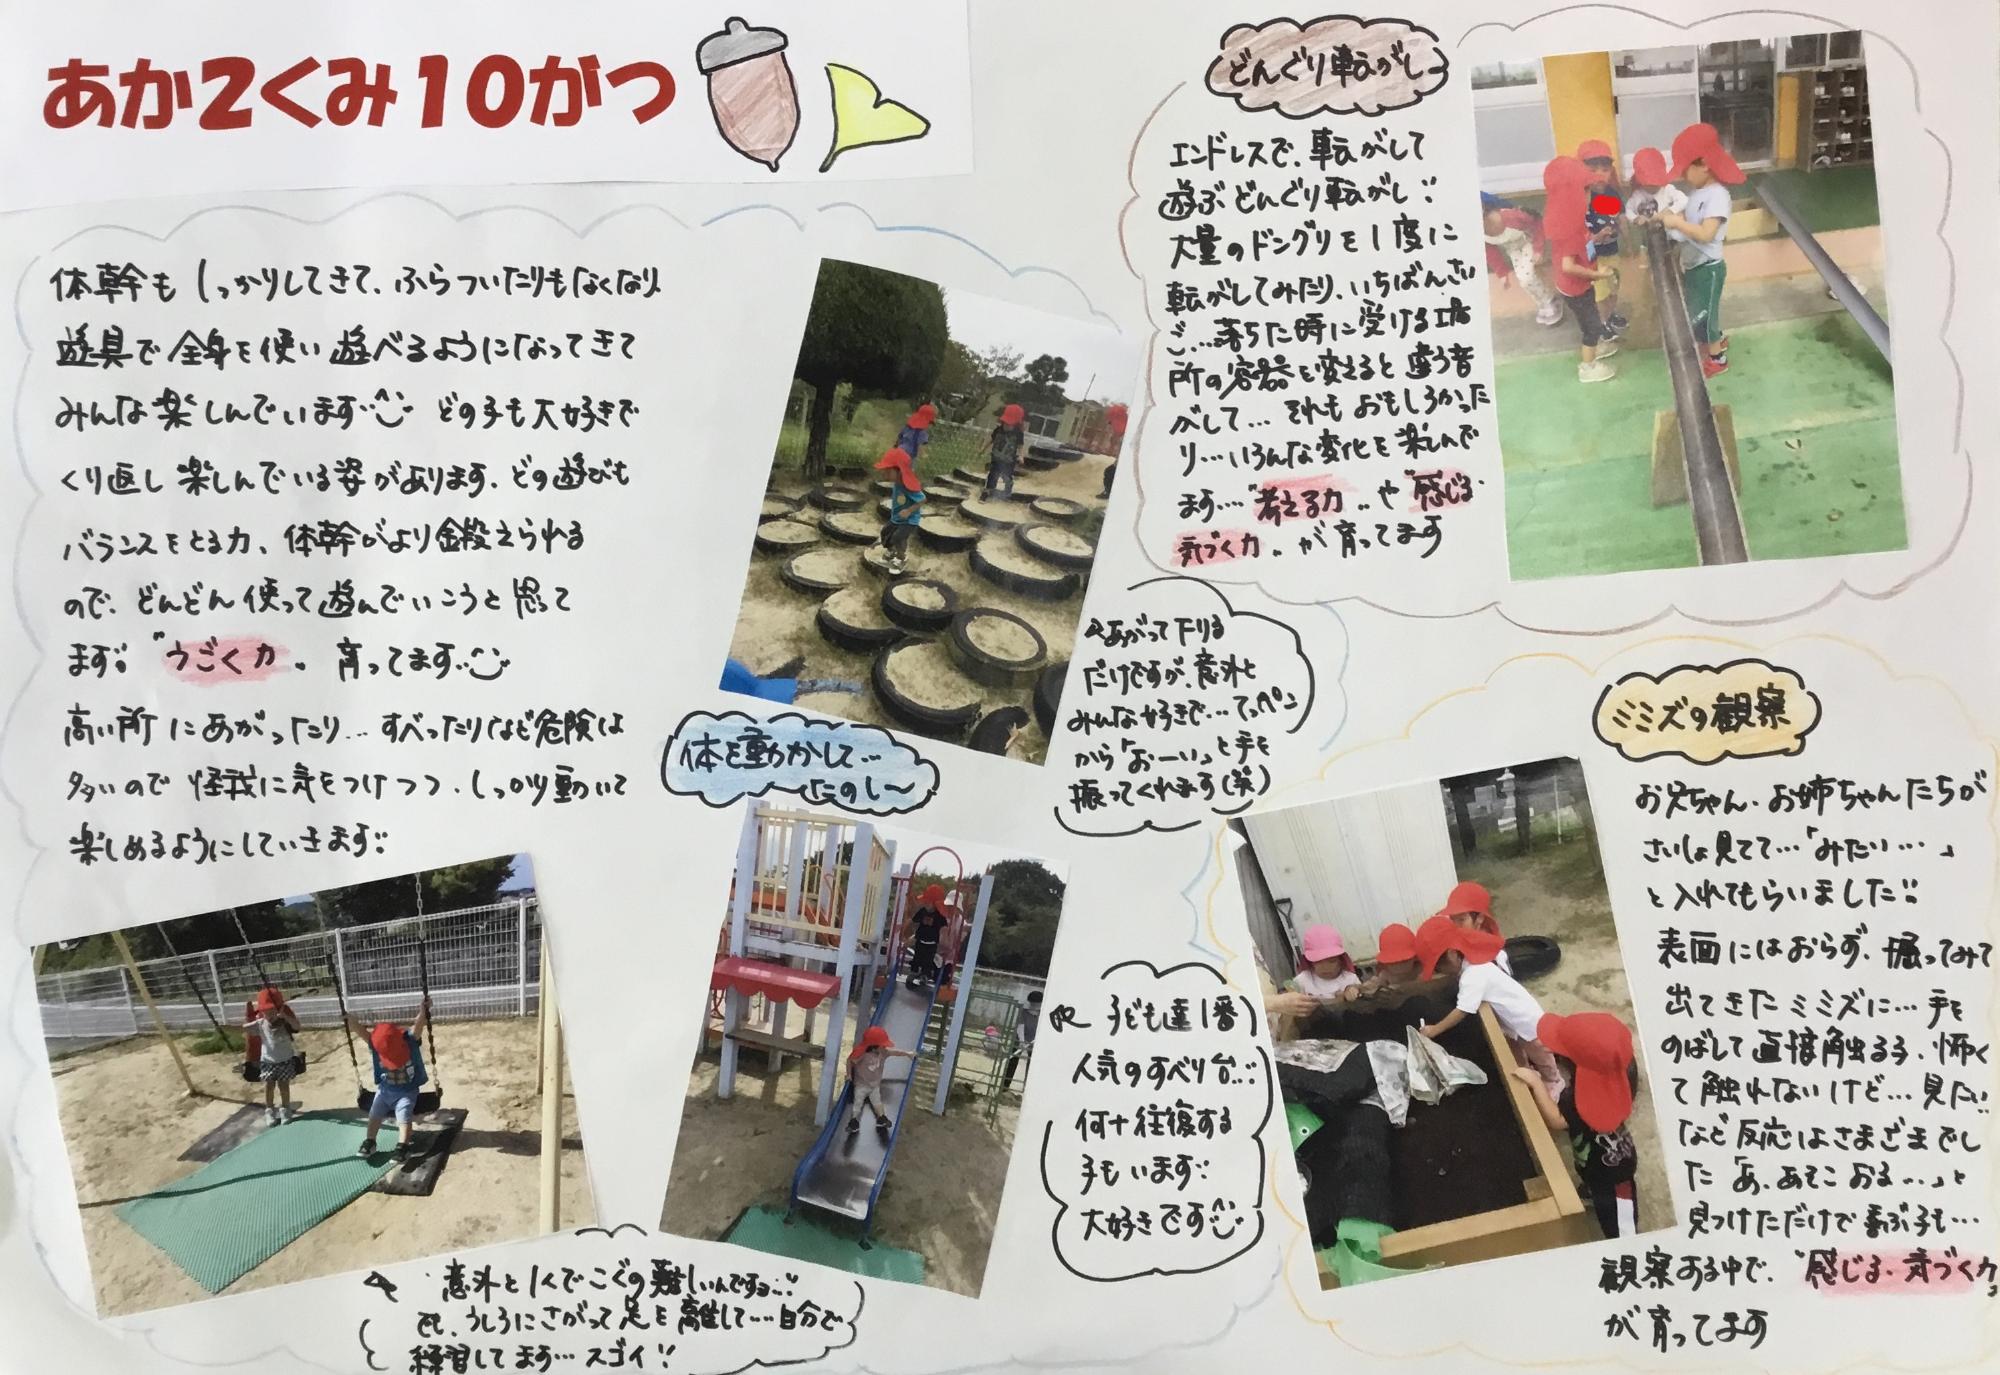 あか2くみ10がつ
体幹もしっかりしてきて、ふらついたりもなくなり、
遊具で全身を使い遊べるようになってきて
みんな楽しんでいます どの子も大好きで
くり返し楽しんでいる姿があります。どの遊びも
バランスをとる力、体幹がより鍛えられる
ので、どんどん使って遊んでいこうと思って
ます。"うごく力" 育ってます
高い所にあがったり…すべったりなど危険は
多いので怪我に気をつけつつ、しっかり動いて
楽しめるようにしていきます
体を動かして…
たのし〜
あがって下りる
だけですが、意外と
みんな好きで…てっペン
から「おーい」と手を
振ってくれます(笑)
子ども達1番
人気のすべり台…
何十往復する
子もいます
大好きです
意外と1人でこぐの難しいんですョ…
でも、うしろにさがって足を離して…自分で
練習してます…スゴイ!!
どんぐり転がし
エンドレスで、転がして
遊ぶどんぐり転がし
大量のドングリを1度に
転がしてみたり、いちばんさい
ご…落ちた時に受ける場
所の容器を変えると違う音
がして…それもおもしろかった
り…いろんな変化を楽しんで
ます…"考える力"や"感じる・
気づく力"が育ってます
ミミズの観察
お兄ちゃん・お姉ちゃんたちが
さいしょ見てて…「みたい…」
と入れてもらいました
表面にはおらず、掘ってみて
出てきたミミズに…手を
のばして直接触る子、怖く
て触れないけど…見たい…
など反応はさまざまでし
た「あ、あそこおる…」と
見つけただけで喜ぶ子も…
観察する中で、"感じる・気づく力"
が育ってます